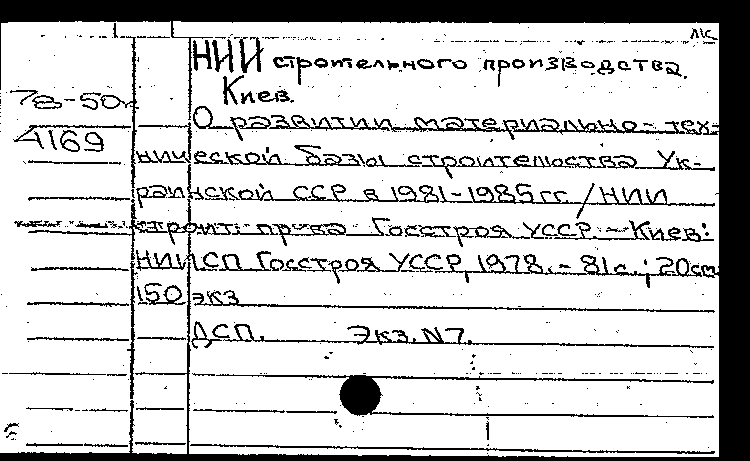 НИИ строительного производства.
Киев.
78-50
4169
О развитии материально-тех-
нической базы строительства Ук-
раинской ССР в 1981-1985 гг / НИИ
строит. пр-ва Госстроя УССР. - Киев:
НИИСП Госстроя УССР, 1978. - 81с.; 20см
150 экз
ДСП. Экз. N7.